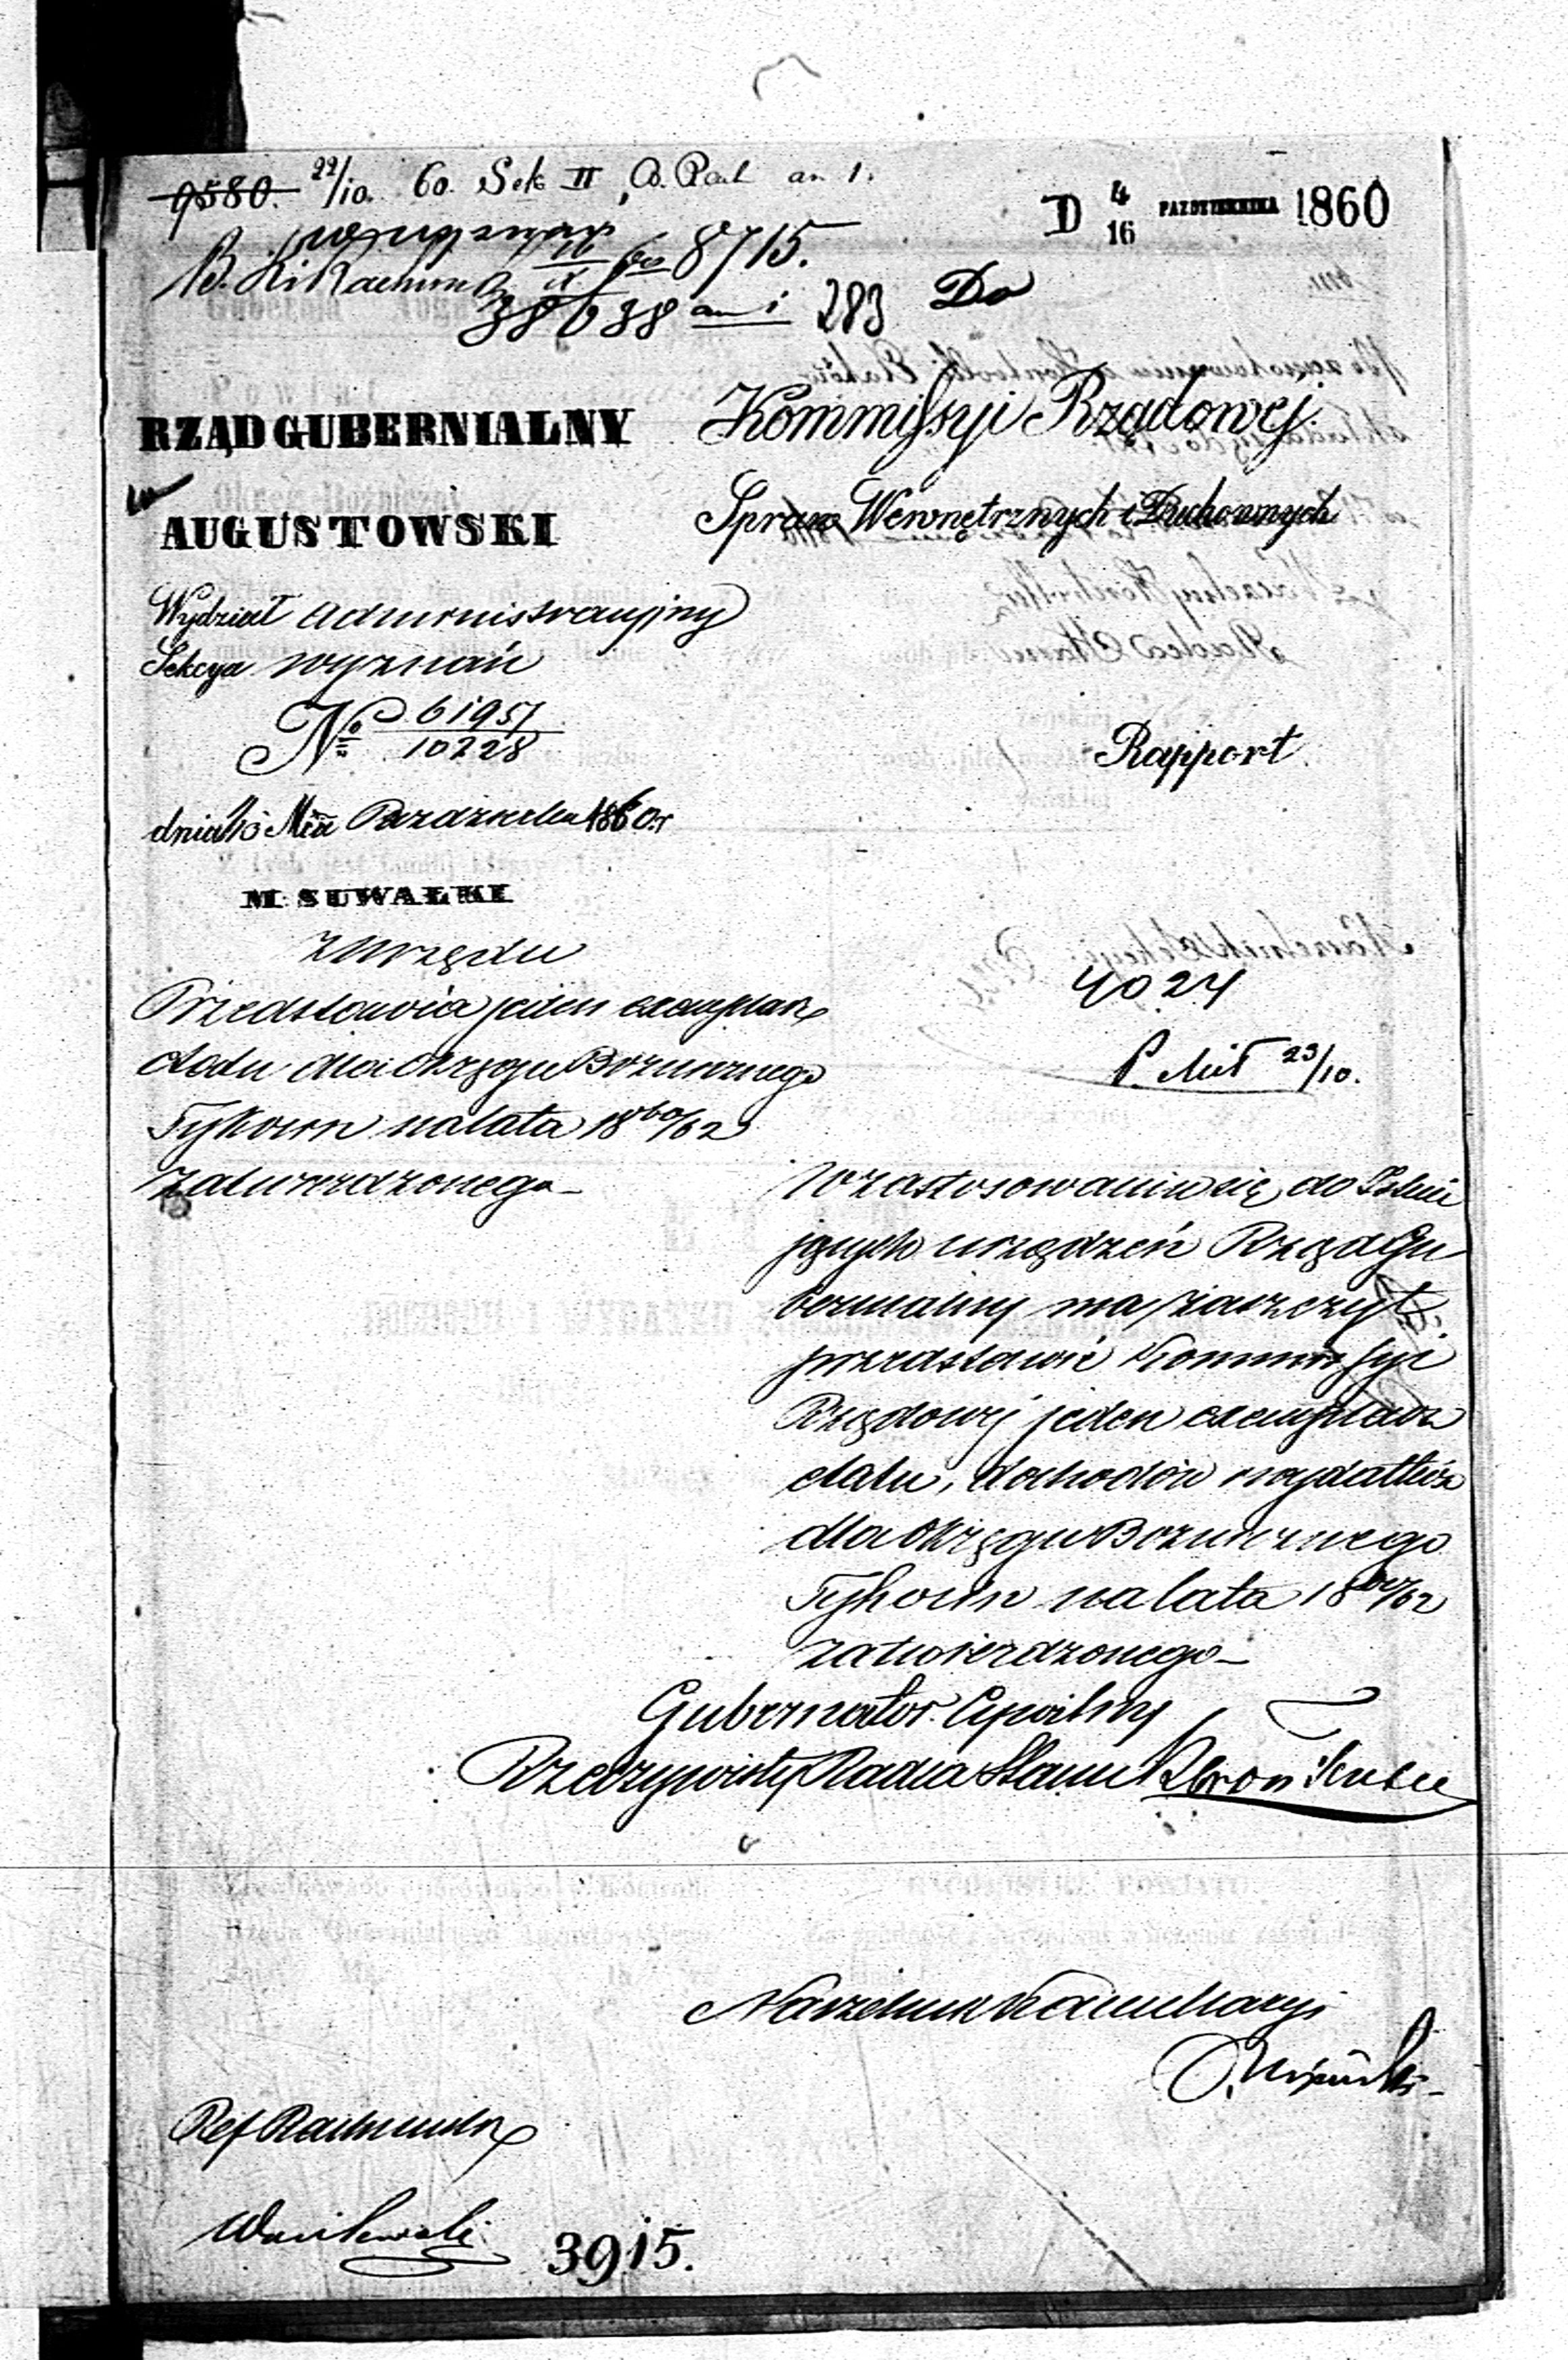 9580. 22/10. 60. Sek II
D 4/16 PAZDZIERNIKA 1860
8715.
38638 an 1 283
Do
RZĄD GUBERNIALNY
AUGUSTOWSKI
Kommissyi Rządowej
Spraw Wewnętrznych i Duchownych
Wydział Administracyjny
Sekcya wyznań
No 61951/10228
Rapport.
dnia 4/16 Mca Października 1860 r
M. SUWAŁKI
Z Urzędu
Przedstawia jeden exemplarz
etatu dla Okręgu Bożniczego
Tykocin na lata 1860/62
zatwierdzonego
4024
23/10.
W zastosowaniu się do Istnie
jących urządzeń Rząd Gu
bernialny ma zaszczyt
przedstawić Kommissyi
Rządowej jeden exemplarz
etatu, dochodów i wydatków
dla Okręgu Bożniczego
Tykocin na lata 1860/62
zatwierdzonego
Gubernator Cywilny
Rzeczywisty Radca Stanu
Naczelnik Kancellaryi
Wasilewski
3915.